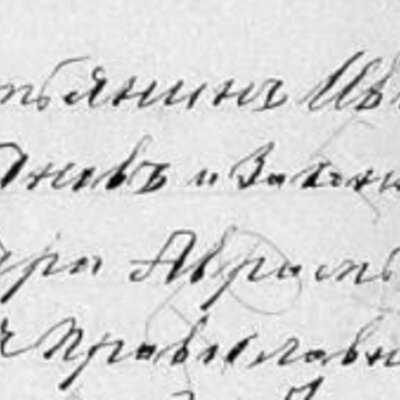 тьянинъ Ив
новъ и Закон
ра Аврам
Православн